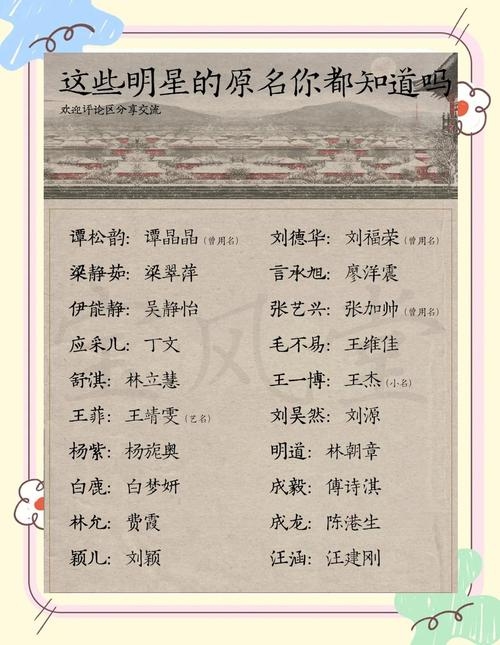 这些明星的原名你都知道吗
欢迎评论区分享交流
谭松韵：谭晶晶(曾用名)
梁静茹：梁翠萍
伊能静：吴静怡
应采儿：丁文
舒淇：林立慧
王菲：王靖雯(艺名)
杨紫：杨旎奥
白鹿：白梦妍
林允：费霞
颖儿：刘颖
刘德华：刘福荣(曾用名)
言承旭：廖洋震
张艺兴：张加帅(曾用名)
毛不易：王维佳
王一博：王杰(小名)
刘昊然：刘源
明道：林朝章
成毅：傅诗淇
成龙：陈港生
汪涵：汪建刚